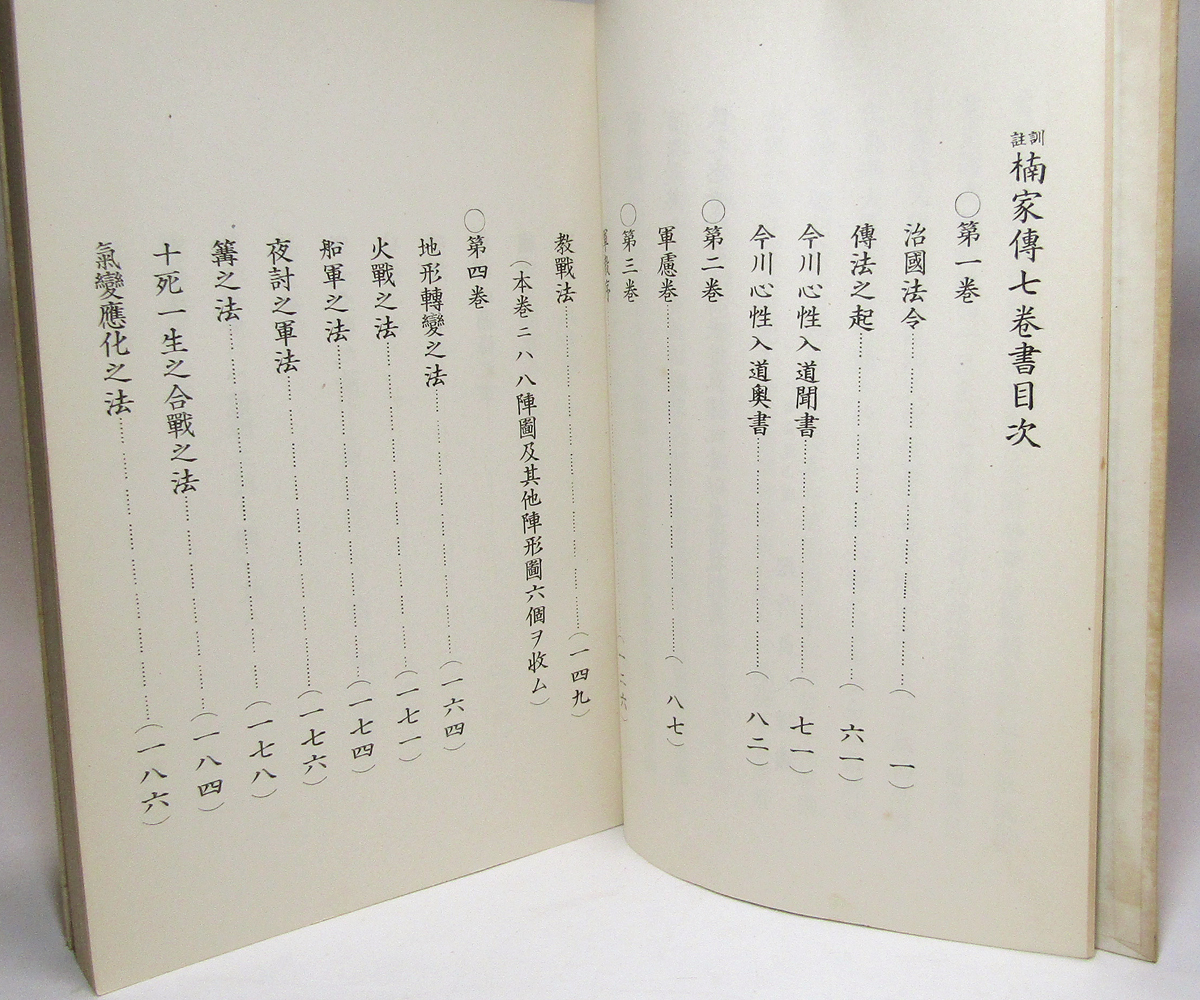 訓註 楠家傳七卷書目次
〇第一巻
治國法令……（一）
傳法之起……（六一）
今川心性入道聞書……（七一）
今川心性入道奥書……（八二）
〇第二巻
軍慮巻……（八七）
〇第三巻
（一二六）
教戰法……（一四九）
（本巻ニハ八陣圖及其他陣形圖六個ヲ收ム）
〇第四巻
地形轉變之法……（一六四）
火戰之法……（一七一）
船軍之法……（一七四）
夜討之軍法……（一七六）
篝之法……（一七八）
十死一生之合戰之法……（一八四）
氣變應化之法……（一八六）